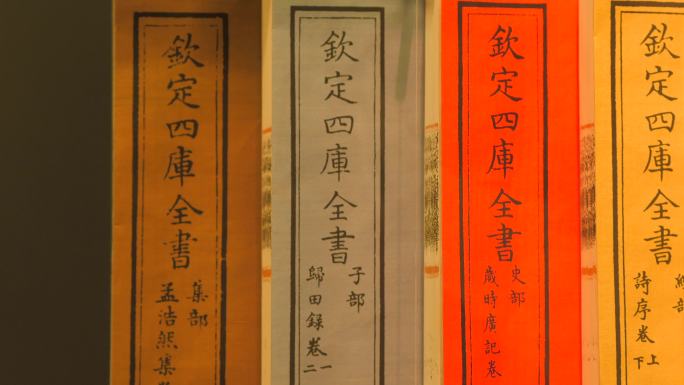 欽定四庫全書
集部
孟浩然集
欽定四庫全書
子部
歸田録卷一二
欽定四庫全書
史部
歲時廣記卷
欽定四庫全書
部
詩序卷上下